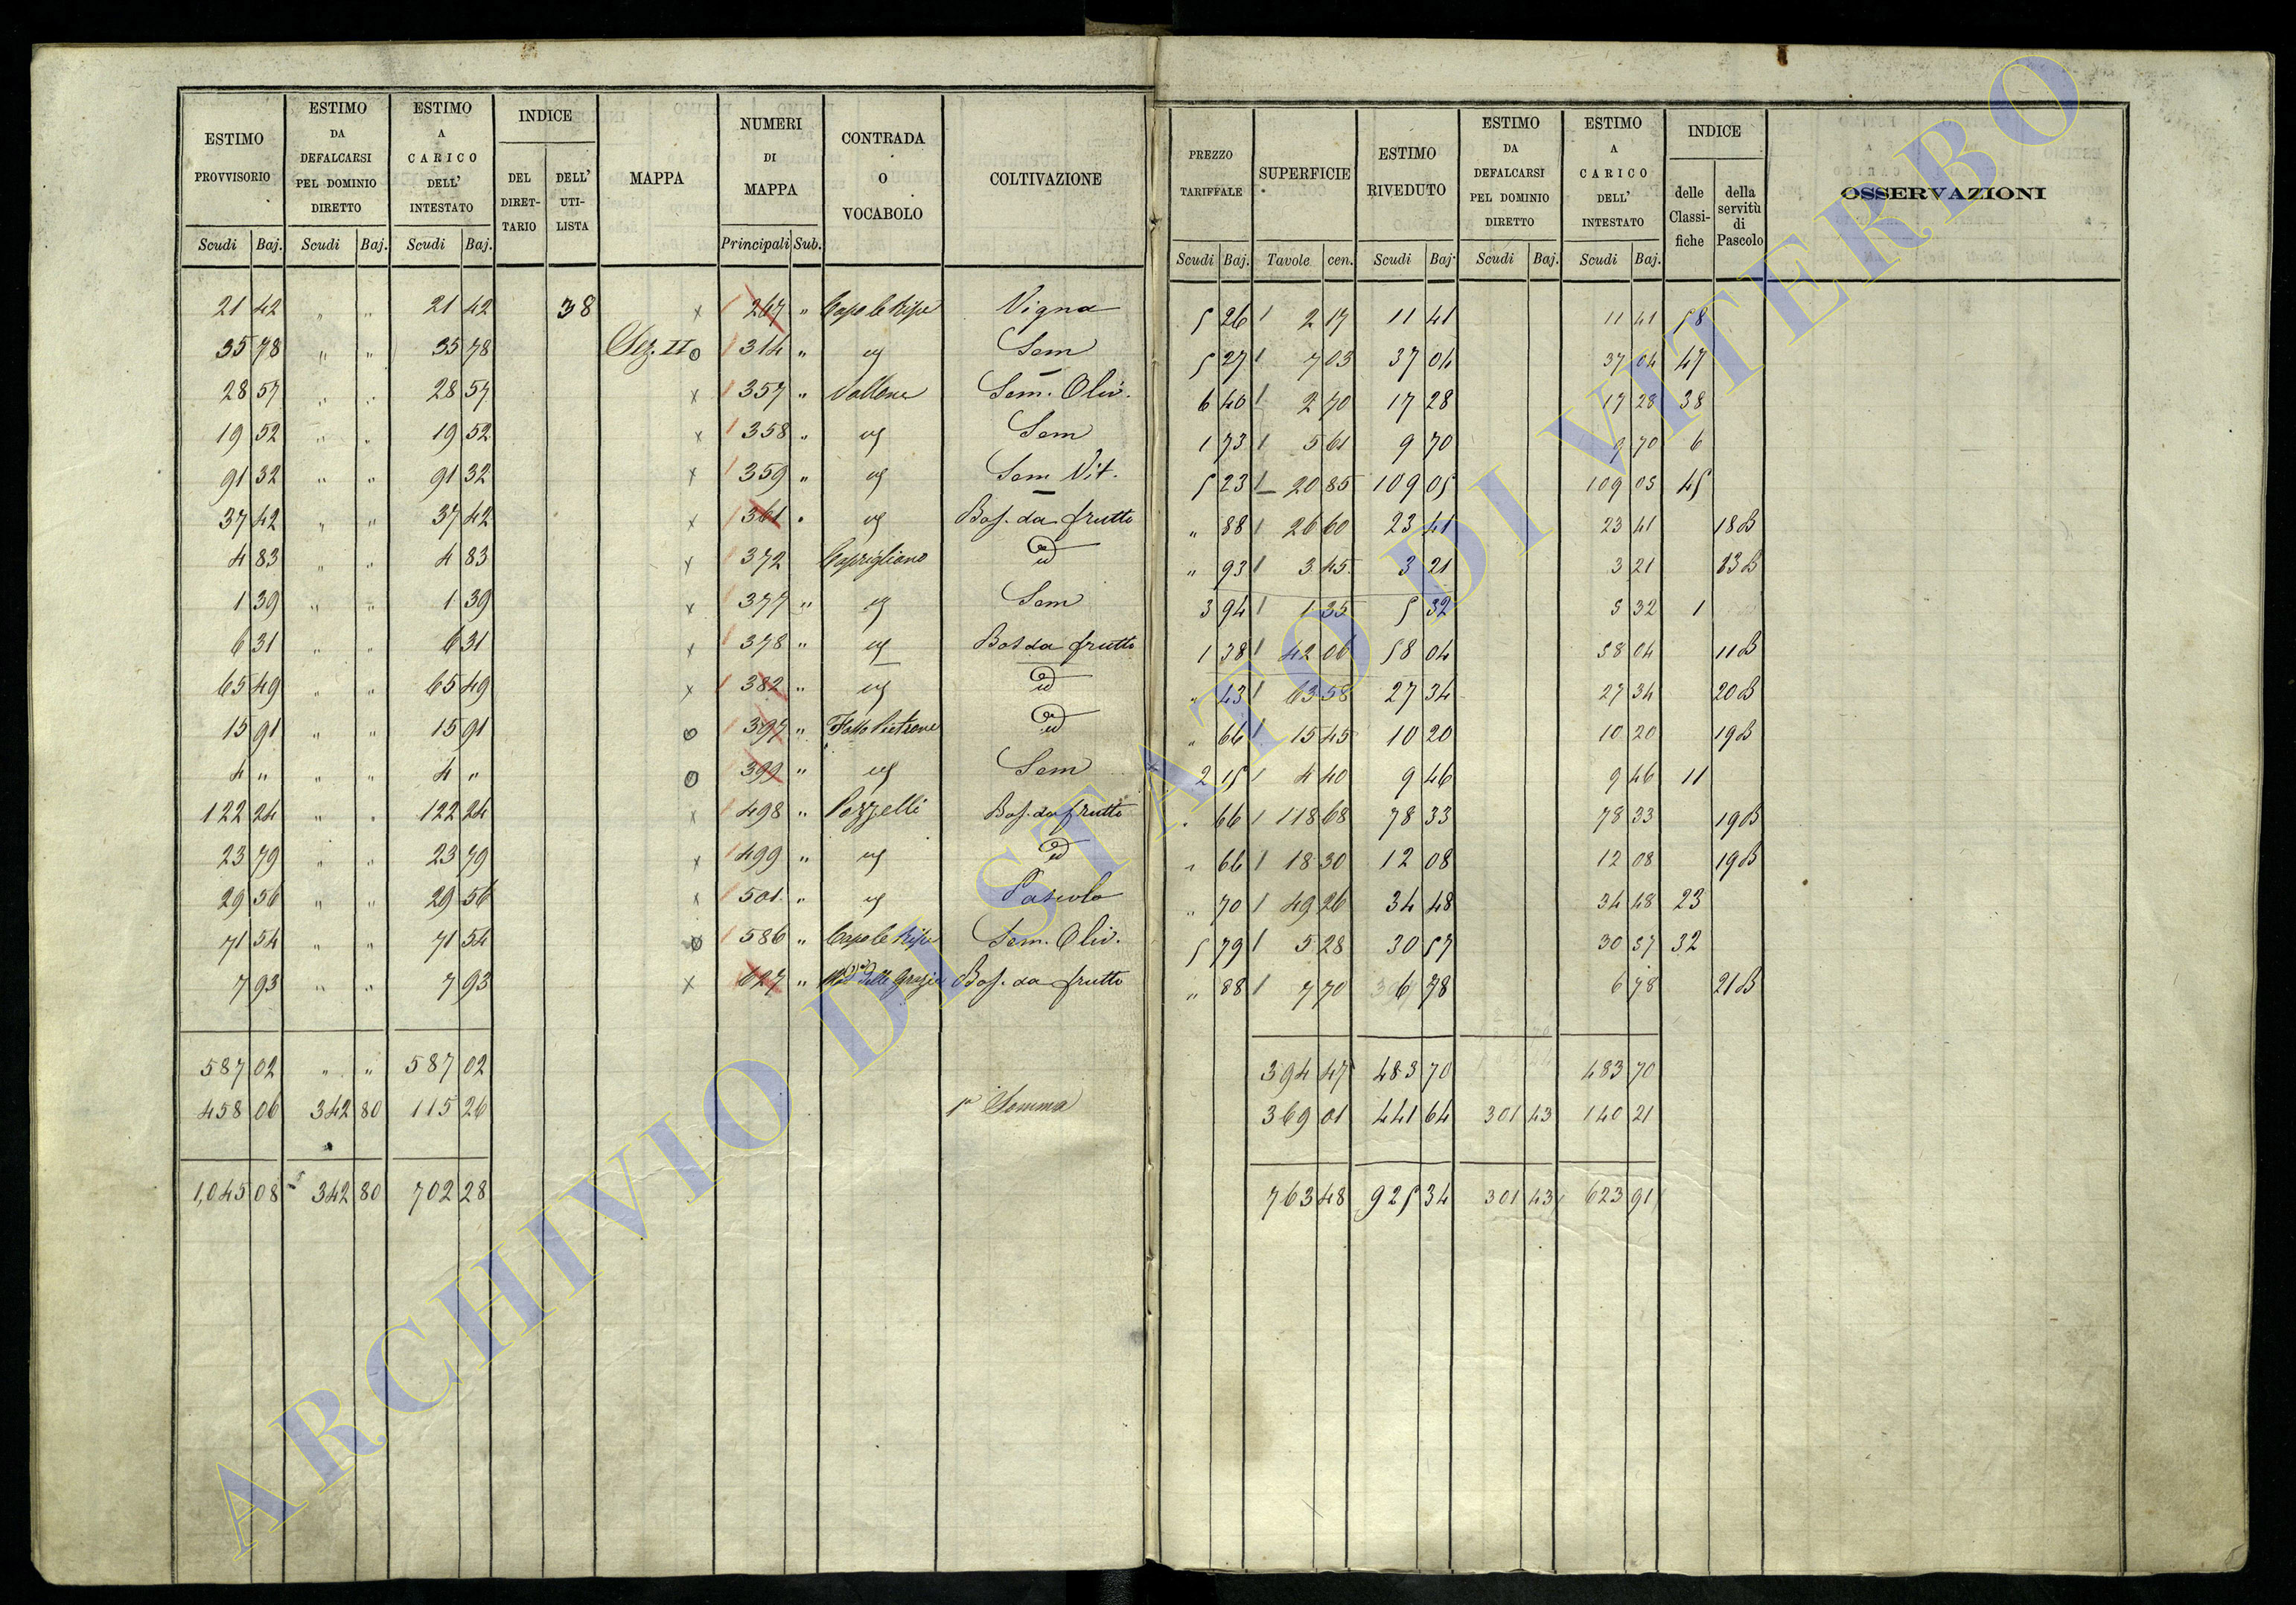 ESTIMO PROVVISORIO | ESTIMO DA DEFALCARSI PEL DOMINIO DIRETTO | ESTIMO A CARICO DELL' INTESTATO | INDICE | MAPPA | NUMERI DI MAPPA | CONTRADA O VOCABOLO | COLTIVAZIONE | PREZZO TARIFFALE | SUPERFICIE | ESTIMO RIVEDUTO | ESTIMO DA DEFALCARSI PEL DOMINIO DIRETTO | ESTIMO A CARICO DELL' INTESTATO | INDICE | OSSERVAZIONI
DEL DIRETTARIO | DELL' UTILISTA | delle Classifiche | della servitù di Pascolo
Scudi Baj. | Scudi Baj. | Scudi Baj. | Principali Sub. | Scudi Baj. | Tavole cen. | Scudi Baj. | Scudi Baj. | Scudi Baj.
21 42 " " 21 42 38 x 267 " Capo le Ripe Vigna 5 26 2 17 11 41 11 41 58
35 78 " " 35 78 Sez. II o 314 " id Sem 5 27 7 03 37 04 37 04 47
28 57 " " 28 57 x 357 " Vallone Sem. Oliv. 6 40 2 70 17 28 17 28 38
19 52 " " 19 52 x 358 " id Sem 1 73 5 61 9 70 9 70 6
91 32 " " 91 32 x 359 " id Sem Vit. 5 23 20 85 109 05 109 05 45
37 42 " " 37 42 x 361 " id Bos. da frutto " 88 26 60 23 41 23 41 18B
4 83 " " 4 83 x 372 Caprigliano id " 93 3 45 3 21 3 21 33B
1 39 " " 1 39 x 377 " id Sem 3 94 1 35 5 32 5 32 1
6 31 " " 6 31 x 378 " id Bos da frutto 1 38 42 06 58 04 58 04 11B
65 49 " " 65 49 x 382 " id id " 43 63 58 27 34 27 34 20B
15 91 " " 15 91 o 397 " id " 66 15 45 10 20 10 20 19B
4 " " " 4 " o 399 " id Sem 2 15 4 40 9 46 9 46 11
122 24 " " 122 24 x 498 " Pozzelli Bos. da frutto " 66 118 68 78 33 78 33 19B
23 79 " " 23 79 x 499 " id id " 66 18 30 12 08 12 08 19B
29 56 " " 29 56 x 501 " id Pascolo " 70 49 26 34 48 34 48 23
71 54 " " 71 54 586 " Capo le Ripe Sem. Oliv. 5 79 5 28 30 57 30 57 32
7 93 " " 7 93 x 627 " delle Grazie Bos. da frutto " 88 7 70 6 78 6 78 21B
587 02 " " 587 02 394 47 483 70 483 70
458 06 342 80 115 26 Somma 369 01 441 64 301 43 140 21
1,045 08 342 80 702 28 763 48 925 34 301 43 623 91
ARCHIVIO DI STATO DI VITERBO